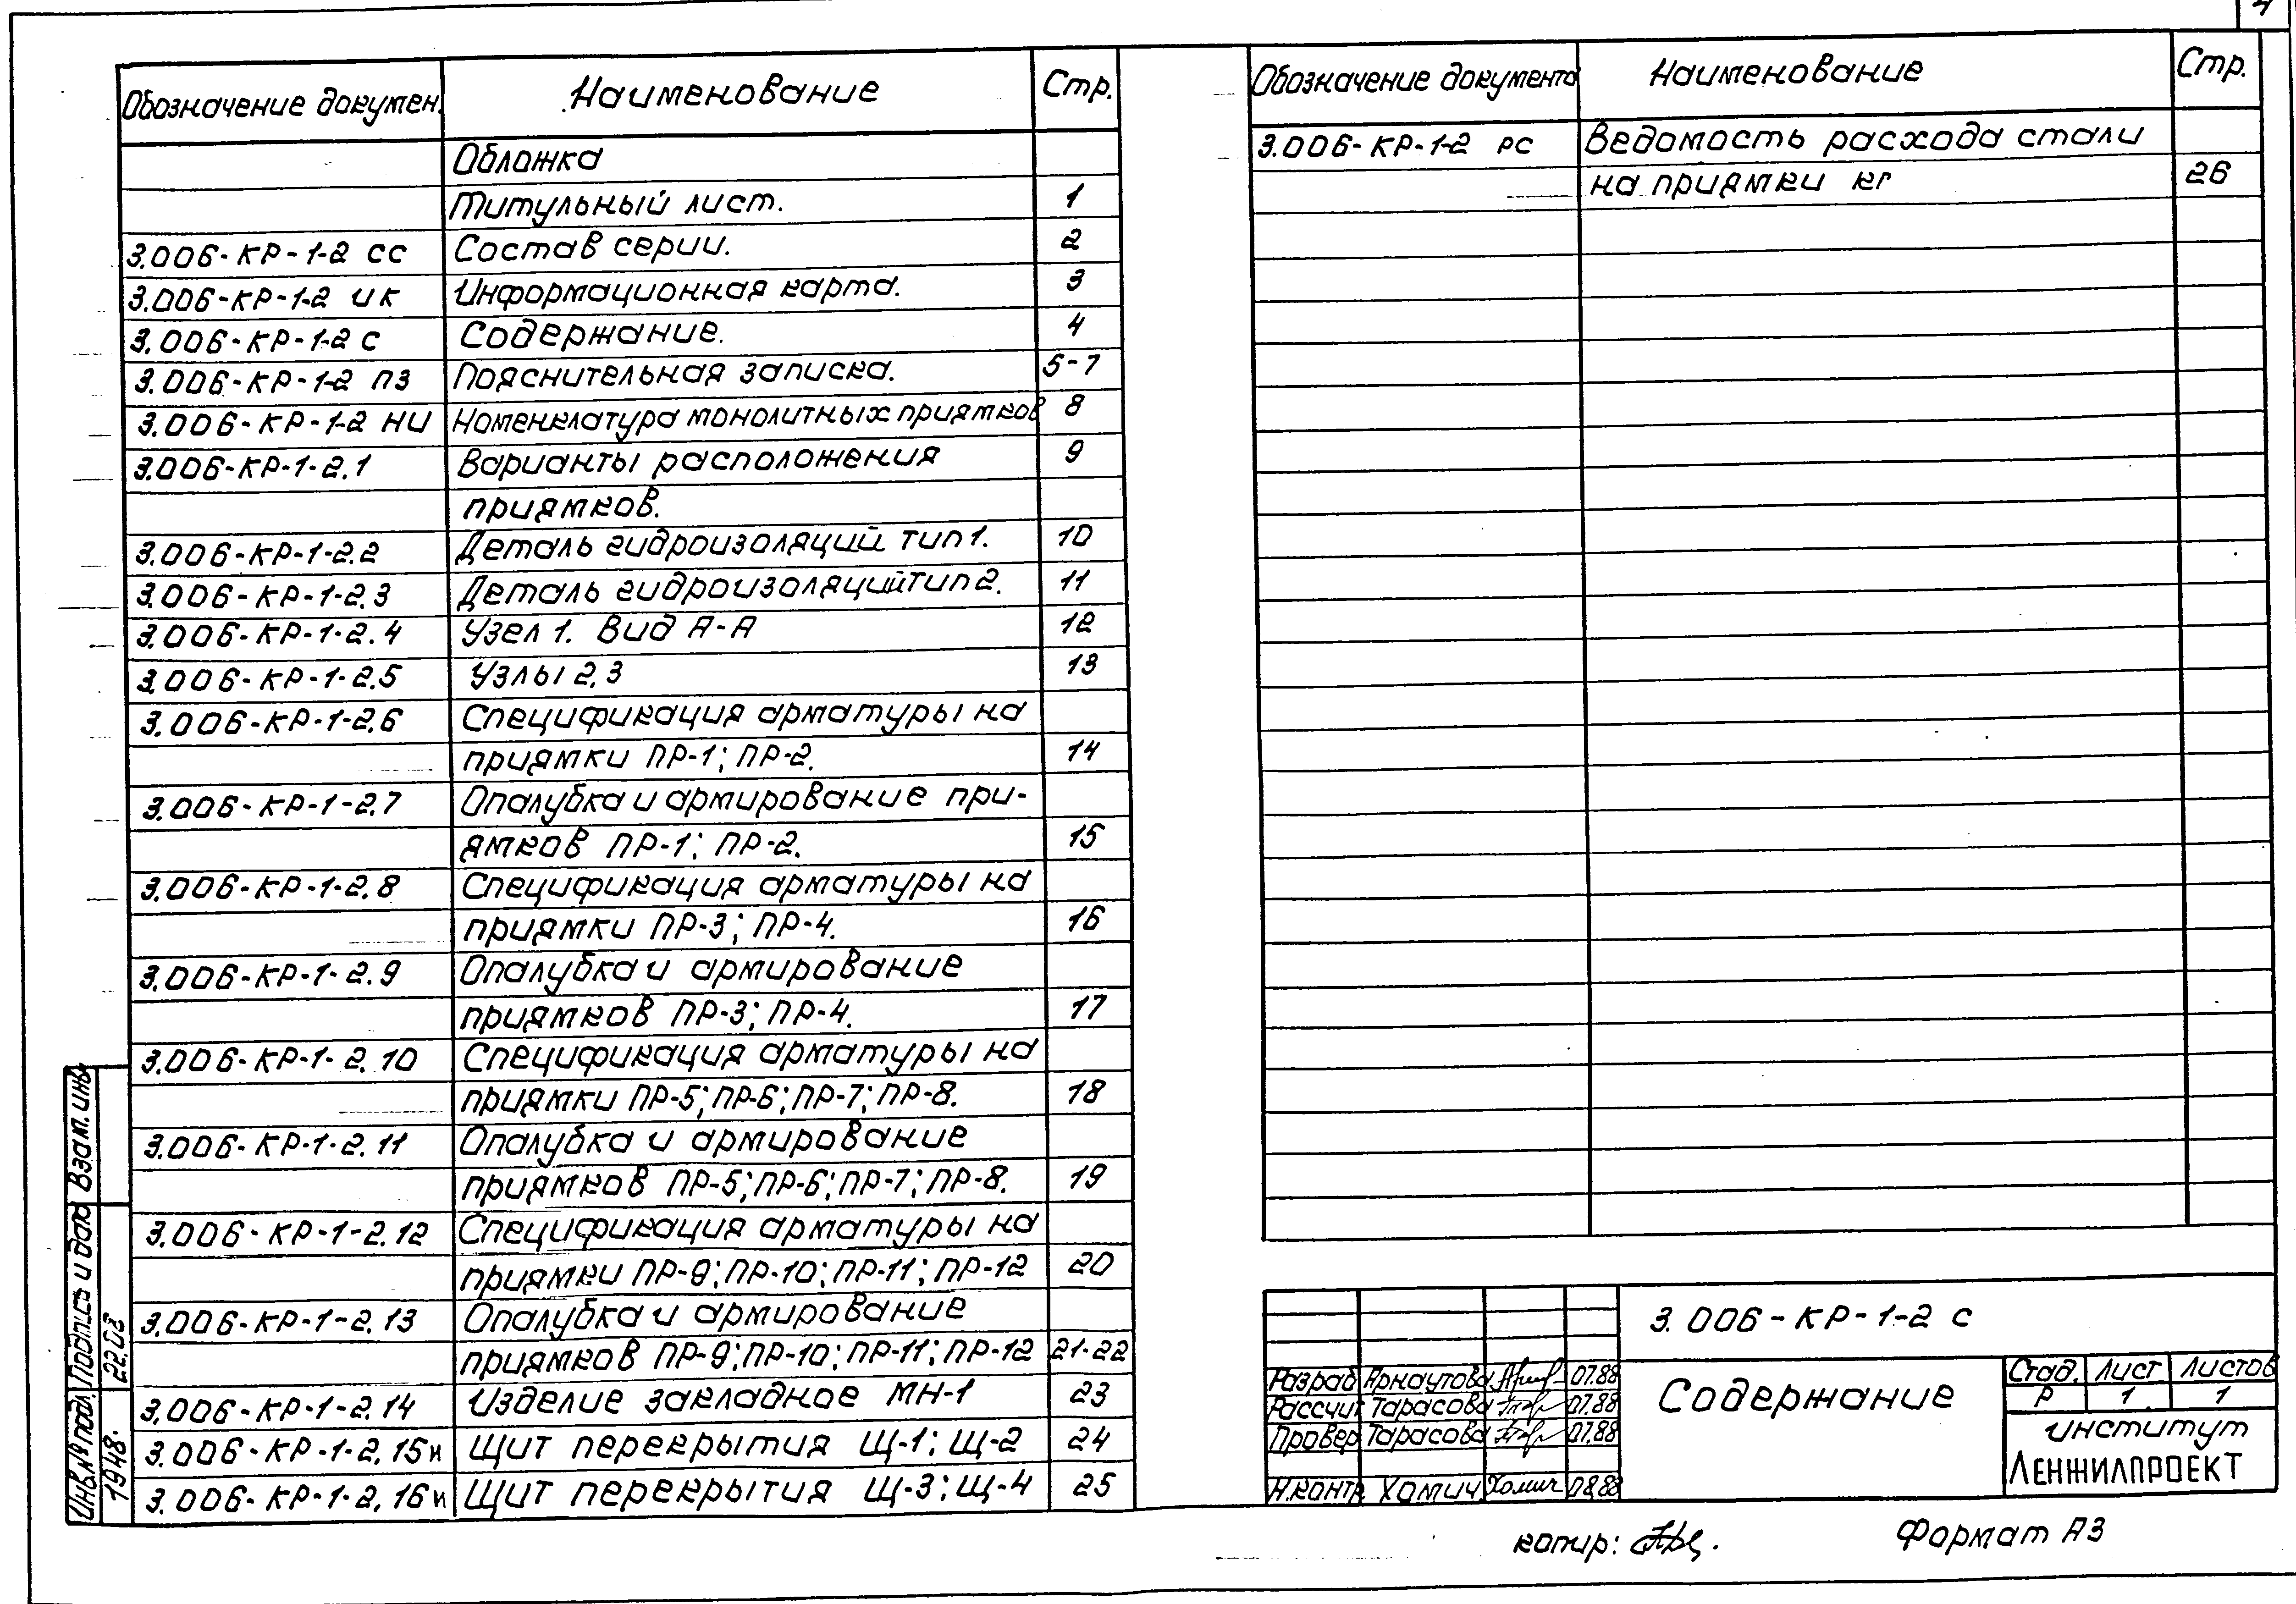 4
Обозначение докумен. Наименование Стр.
Обложка
Титульный лист. 1
3.006-КР-1-2 СС Состав серии. 2
3.006-КР-1-2 ИК Информационная карта. 3
3.006-КР-1-2 С Содержание. 4
3.006-КР-1-2 ПЗ Пояснительная записка. 5-7
3.006-КР-1-2 НИ Номенклатура монолитных приямков 8
3.006-КР-1-2.1 Варианты расположения 9
приямков.
3.006-КР-1-2.2 Деталь гидроизоляций тип 1. 10
3.006-КР-1-2.3 Деталь гидроизоляций тип 2. 11
3.006-КР-1-2.4 Узел 1. Вид А-А 12
3.006-КР-1-2.5 Узлы 2,3 13
3.006-КР-1-2.6 Спецификация арматуры на
приямки ПР-1; ПР-2. 14
3.006-КР-1-2.7 Опалубка и армирование при-
ямков ПР-1; ПР-2. 15
3.006-КР-1-2.8 Спецификация арматуры на
приямки ПР-3; ПР-4. 16
3.006-КР-1-2.9 Опалубка и армирование
приямков ПР-3; ПР-4. 17
3.006-КР-1-2.10 Спецификация арматуры на
приямки ПР-5; ПР-6; ПР-7; ПР-8. 18
3.006-КР-1-2.11 Опалубка и армирование
приямков ПР-5; ПР-6; ПР-7; ПР-8. 19
3.006-КР-1-2.12 Спецификация арматуры на
приямки ПР-9; ПР-10; ПР-11; ПР-12 20
3.006-КР-1-2.13 Опалубка и армирование
приямков ПР-9; ПР-10; ПР-11; ПР-12 21-22
3.006-КР-1-2.14 Изделие закладное МН-1 23
3.006-КР-1-2.15и Щит перекрытия Щ-1; Щ-2 24
3.006-КР-1-2.16и Щит перекрытия Щ-3; Щ-4 25
Обозначение документа Наименование Стр.
3.006-КР-1-2 РС Ведомость расхода стали
на приямки кг 26
Взам. инв
Подпись и дата
22.08
Инв.№ подл.
1948.
3.006-КР-1-2 С
Разраб Арнаутова 07.88
Рассчит Тарасова 07.88
Провер Тарасова 07.88
Н.контр. Хомич Хомич 08.88
Содержание
Стад. Лист Листов
Р 1 1
институт
ЛЕНЖИЛПРОЕКТ
копир:
Формат А3